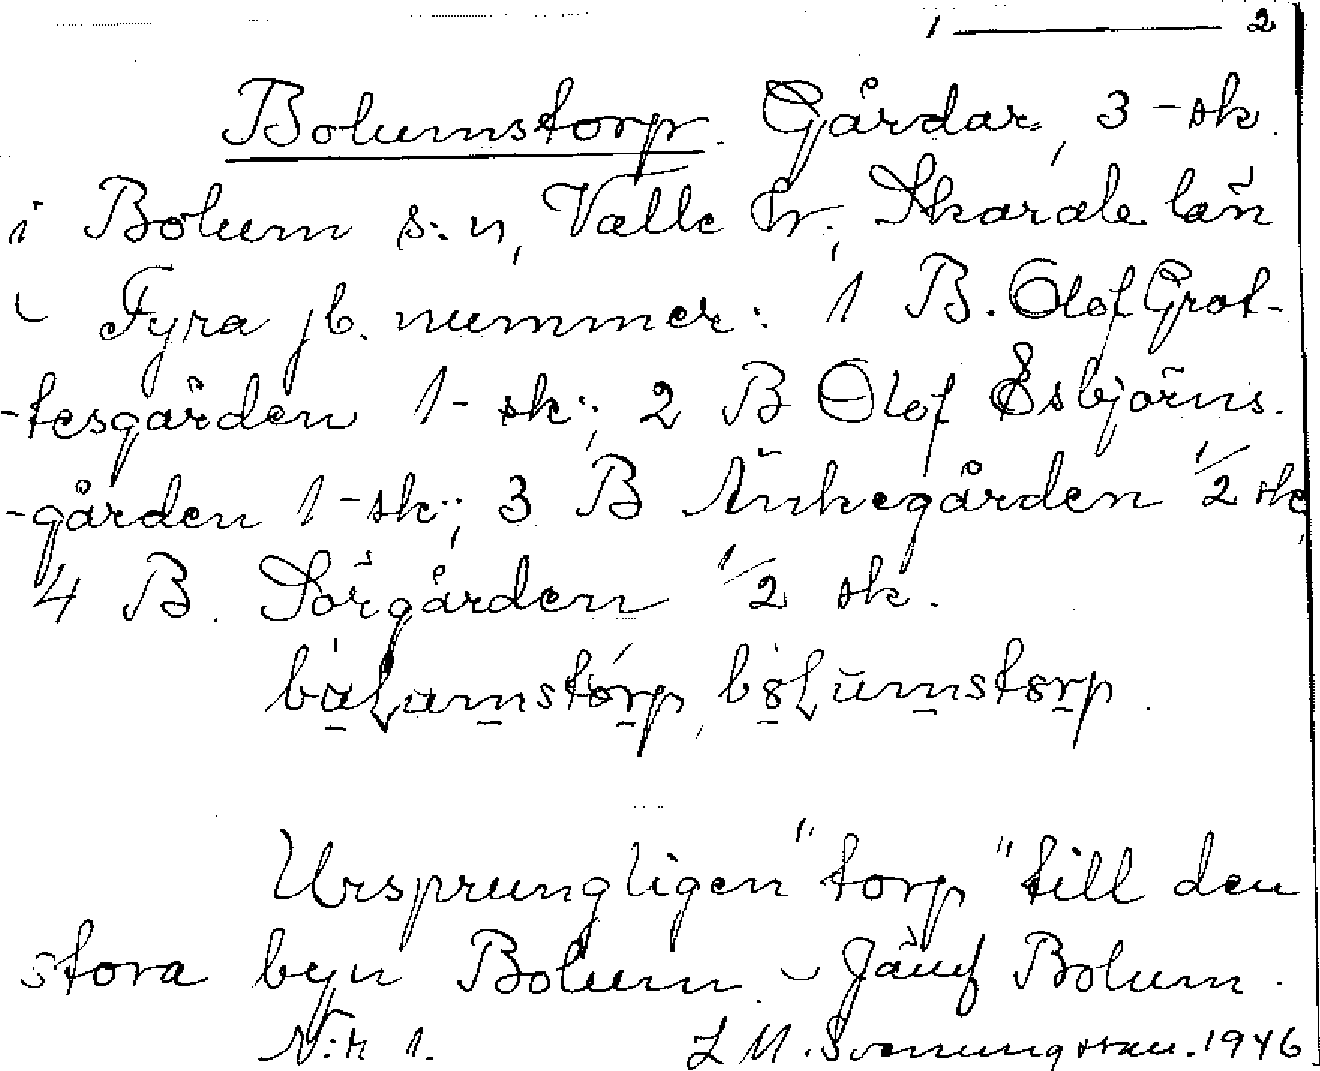 1 — 2
Bolumstorp. Gårdar, 3-sk.
i Bolum s:n, Valle hr., Skarab. län
- Fyra jb. nummer: 1 B. Olof Grot-
-tesgården 1-sk.; 2 B Olof Esbjörns-
-gården 1-sk.; 3 B Änkegården 1/2 sk,
4 B. Sörgården 1/2 sk.
Ursprungligen "torp" till den
stora byn Bolum. - Jämf Bolum.
N:r 1. L M. Svenungsson. 1946